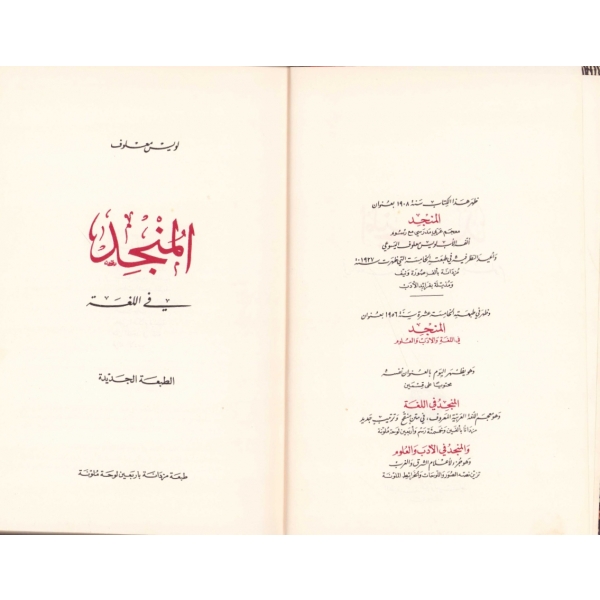 ظهر هذا الكتاب سنة ١٩٠٨ بعنوان
المنجد
معجم عربي مدرسي مع رسوم
الفه الأب لويس معلوف اليسوعي
وأعيد النظر فيه في طبعته الخامسة التي ظهرت سنة ١٩٢٧
مزدانة بألف صورة ونيف
ومذيلة بفرائد الأدب
وظهر في طبعته الخامسة عشرة سنة ١٩٥٦ بعنوان
المنجد
في اللغة والأدب والعلوم
وهو يظهر اليوم بالعنوان نفسه
محتويا على قسمين
المنجد في اللغة
وهو معجم اللغة العربية المعروف، في متن منقح وترتيب جديد
مزدانا بألفين وخمسة رسم وأربعين لوحة ملونة
والمنجد في الأدب والعلوم
وهو جزء لأعلام الشرق والغرب
تزين نصه الصور واللوحات والخرائط الملونة
لويس معلوف
المنجد
في اللغة
الطبعة الجديدة
طبعة مزدانة بأربعين لوحة ملونة